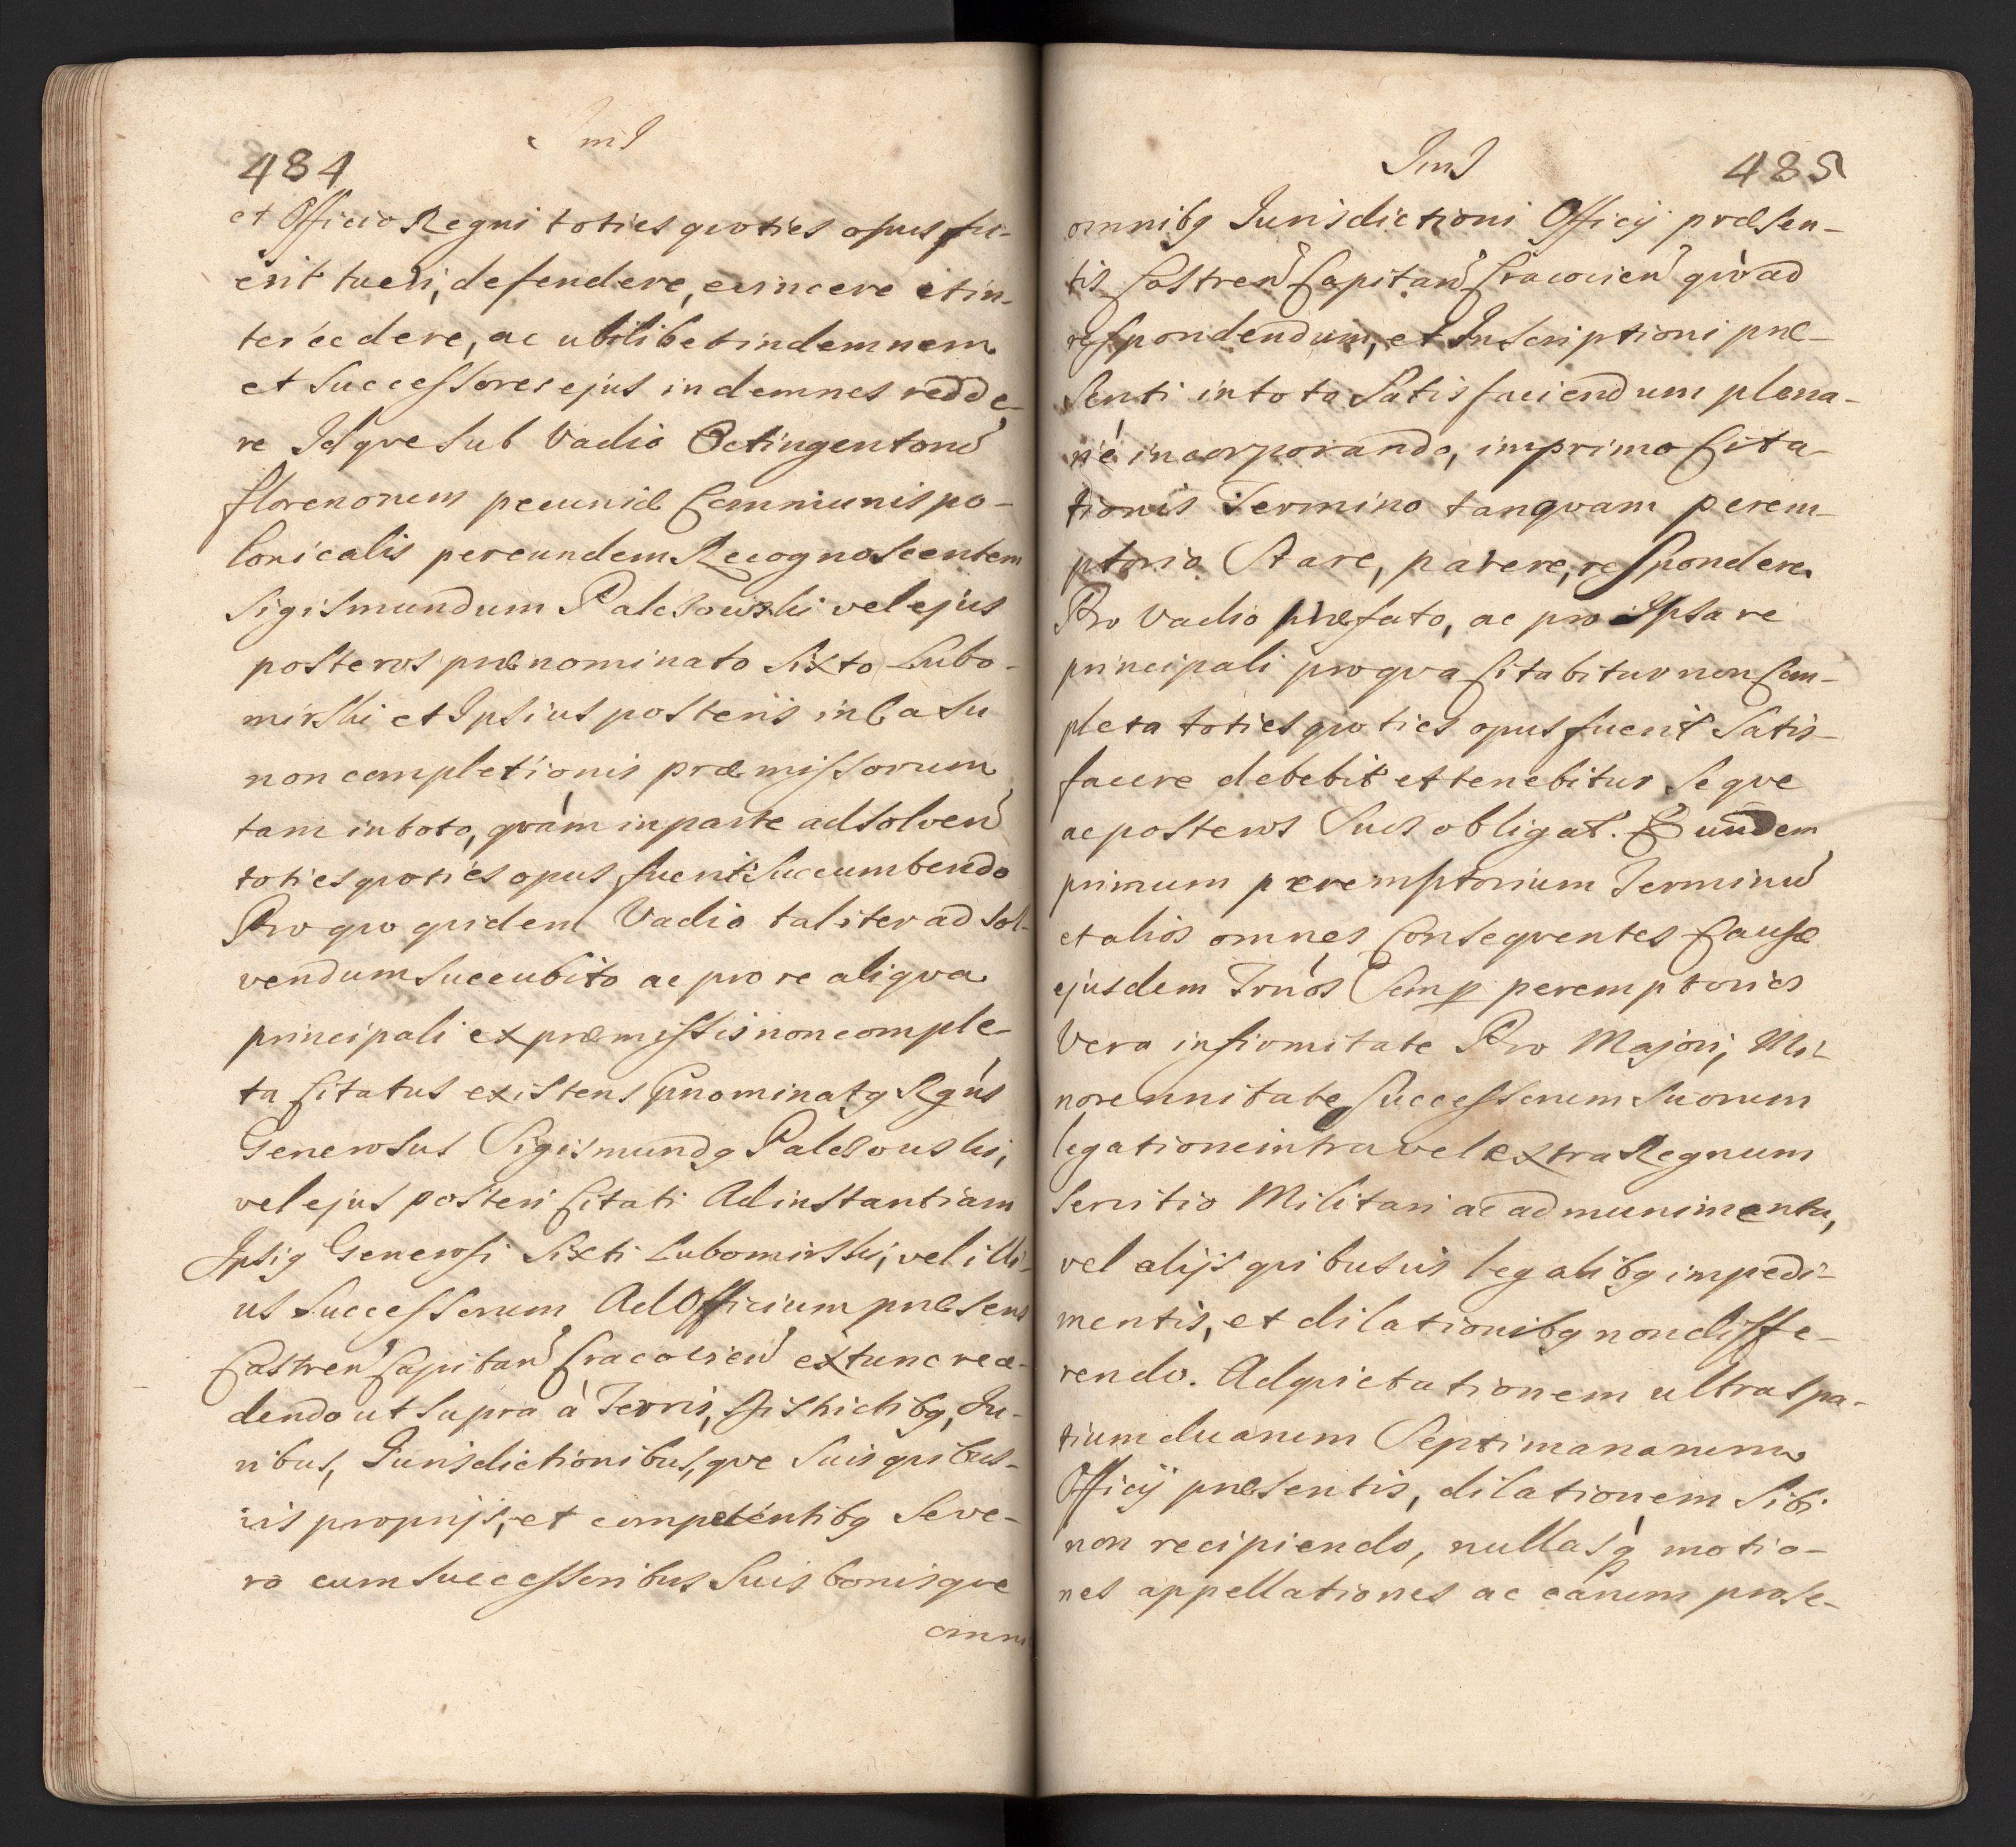 484
et Officio Regni toties qvoties opus fu-
erit tueri, defendere, evincere et in-
tercedere, ac ubilibet indemnem
et Successores ejus indemnes redde-
re Idqve sub Vadio Octingentorū
florenorum pecuniæ Communis po-
lonicalis per eundem Recognoscentem
Sigismundum Palczowski vel ejus
posteros prænominato Sixto Lubo-
mirski et Ipsius posteris in Casu
non completionis præmissorum
tam in toto, qvàm in parte ad solvenđ
toties qvoties opus fuerit Succumbendo
Pro qvo qvidem Vadio taliter ad sol-
vendum succubito ac pro re aliqva
principali ex præmissis non comple-
ta Citatus existens pñominatq Rgńs
Generosus Sigismundq Palczowski,
vel ejus posteri Citati Ad instantiam
Ipsiq Generosi Sixti Lubomirski, vel illi-
us Successorum Ad Officium præsens
Castren Capitan Cracovien ex tunc rece-
dendo ut supra à Terris, Districtibq, Ju-
ribus, Jurisdictionibus,qve suis qvibus-
vis proprijs, et competentibq Seve-
ro cum successoribus suis bonisqve
omni
ImJ
485
omnibq Jurisdictioni Officij præsen-
tis Castren Capitan Cracovien qvò ad
respondendum, et Inscriptioni præ-
senti in tota Satisfaciendum plena-
rié incorporando, in primo Cita-
tionis Termino tanqvam perem-
ptorio Stare, parere, respondere
Pro Vadio præfato, ac pro Ipsa re
principali pro qva Citabitur non Com-
pleta toties qvoties opus fuerit Satis-
facere debebit et tenebitur seqve
ac posteros suos obligat. Eundem
primum peremptorium Terminū
et alios omnes Conseqventes Causæ
ejusdem Trńos Semp peremptorios
Vera infirmitate Pro Majori, Mi-
norennitate Successorum suorum
legatione intra vel extra Regnum
servitio Militari ac ad munimenta,
vel alijs qvibusvis legalibq impedi-
mentis, et dilationibq non diffe-
rendo. Ad qvietationem ultra spa-
tium duarum Septimanarum
Officij præsentis, dilationem sibi
non recipiendo, nullasq motio-
nes appellationes ac earum prose-